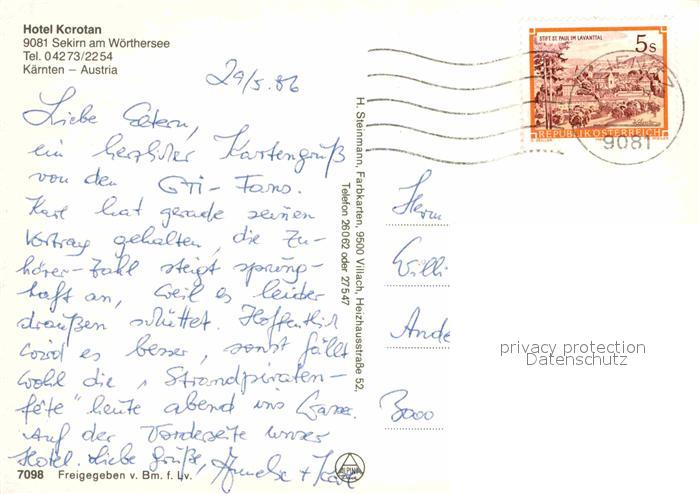 Hotel Korotan
9081 Sekirn am Wörthersee
Tel. 04273/2254
Kärnten – Austria
29/5.86
Liebe Eltern,
ein herzlicher Kartengruß
von den GTI-Fans.
Karl hat gerade seinen
Vortrag gehalten, die Zu-
hörer-Zahl steigt sprung-
haft an, weil es leider
draußen schüttet. Hoffentlich
wird es besser, sonst fällt
wohl die "Strandpiraten-
fête" heute abend ins Wasser.
Auf der Vorderseite unser
Hotel. Liebe Grüße, Anneke + Karl
7098 Freigegeben v. Bm. f. Lv.
H. Steinmann, Farbkarten, 9500 Villach, Heizhausstraße 52,
Telefon 26062 oder 27547
ALPINA
STIFT ST. PAUL IM LAVANTTAL
5s
REPUBLIK ÖSTERREICH
9081
Herrn
Willi
Ande
3000
privacy protection
Datenschutz